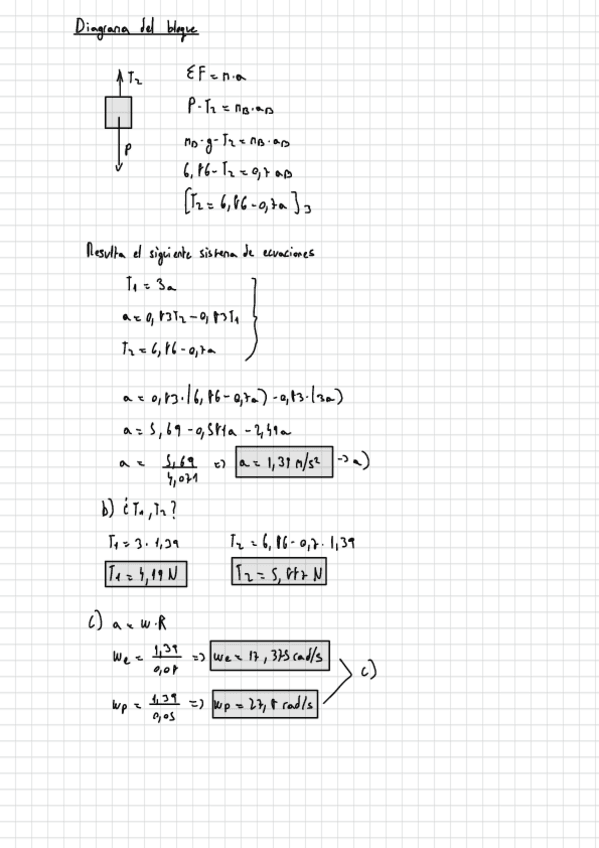 Diagrama del bloque
T₂
P
ΣF = m·a
P - T₂ = m_B·a_B
m_B·g - T₂ = m_B·a_B
6,86 - T₂ = 0,7 a_B
[T₂ = 6,86 - 0,7a]₃
Resulta el siguiente sistema de ecuaciones
T₁ = 3a
a = 0,83T₂ - 0,83T₁
T₂ = 6,86 - 0,7a
a = 0,83·(6,86 - 0,7a) - 0,83·(3a)
a = 5,69 - 0,581a - 2,49a
a = 5,69/4,071 => a = 1,39 m/s² -> a)
b) ¿T₁, T₂?
T₁ = 3·1,39 T₂ = 6,86 - 0,7·1,39
T₁ = 4,19 N T₂ = 5,887 N
c) a = w·R
we = 1,39/0,08 => we = 17,375 rad/s
c)
wp = 1,39/0,05 => wp = 27,8 rad/s